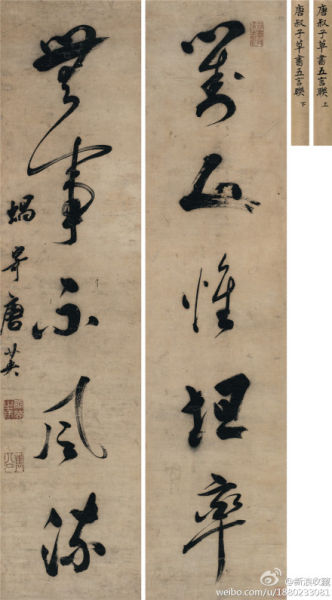 唐叔子草書五言聯 上
唐叔子草書五言聯 下
對人惟坦率
無事亦風流
蝸寄唐英
@新浪收藏
weibo.com/u/1880233081